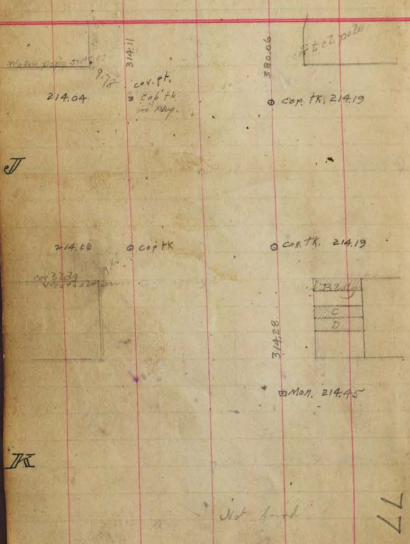 314.11
380.06
9.72
cov. pt.
214.04
Cop tk
cop. tk. 214.19
J
214.06
cop tk
cop. tk. 214.19
Bldg
C
D
314.28
Mon. 214.45
K
Not found
77